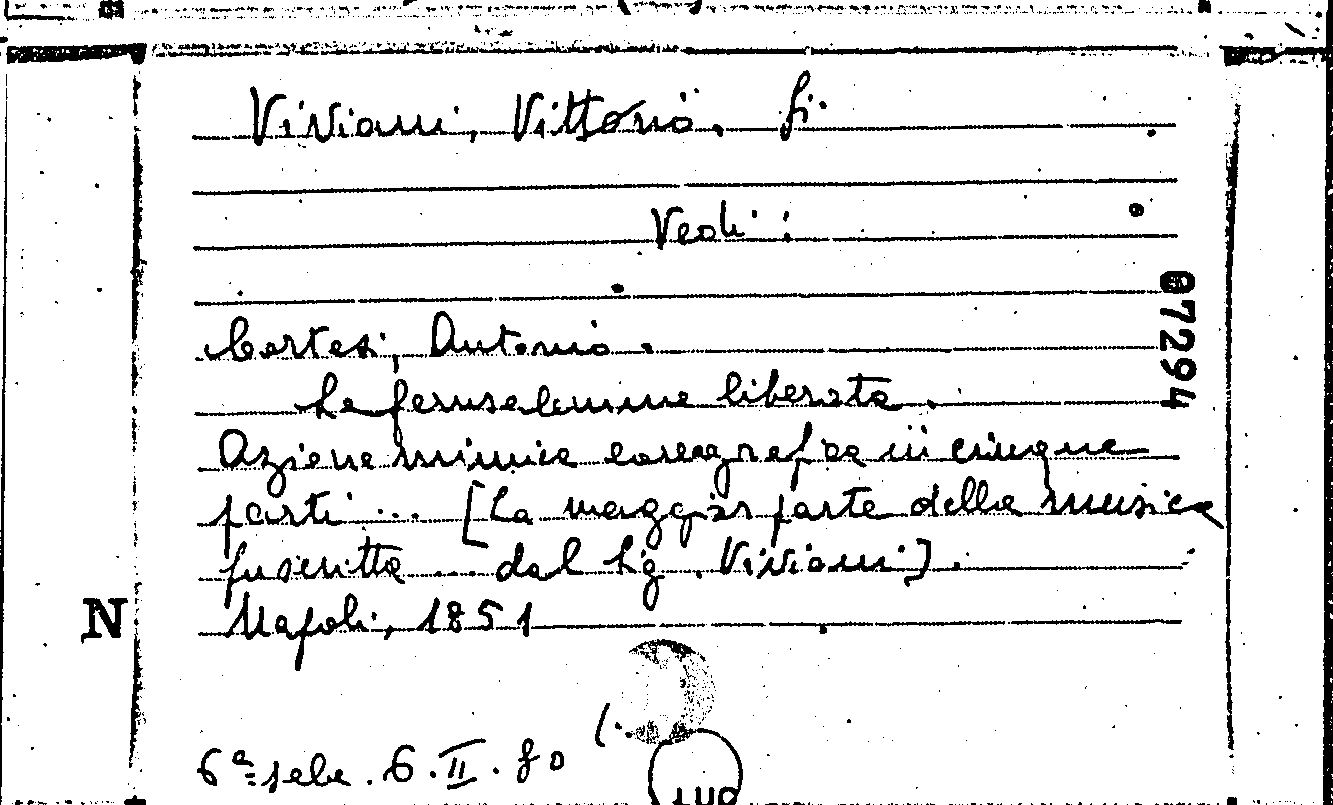 Viviani, Vittorio.
Vedi:
Cortesi, Antonio.
La Gerusalemme liberata.
Azione mimica coreografica in cinque
parti ... [La maggior parte della musica
fu scritta ... dal Sig. Viviani].
Napoli, 1851
N
07294
6ª 6.II.
LUO